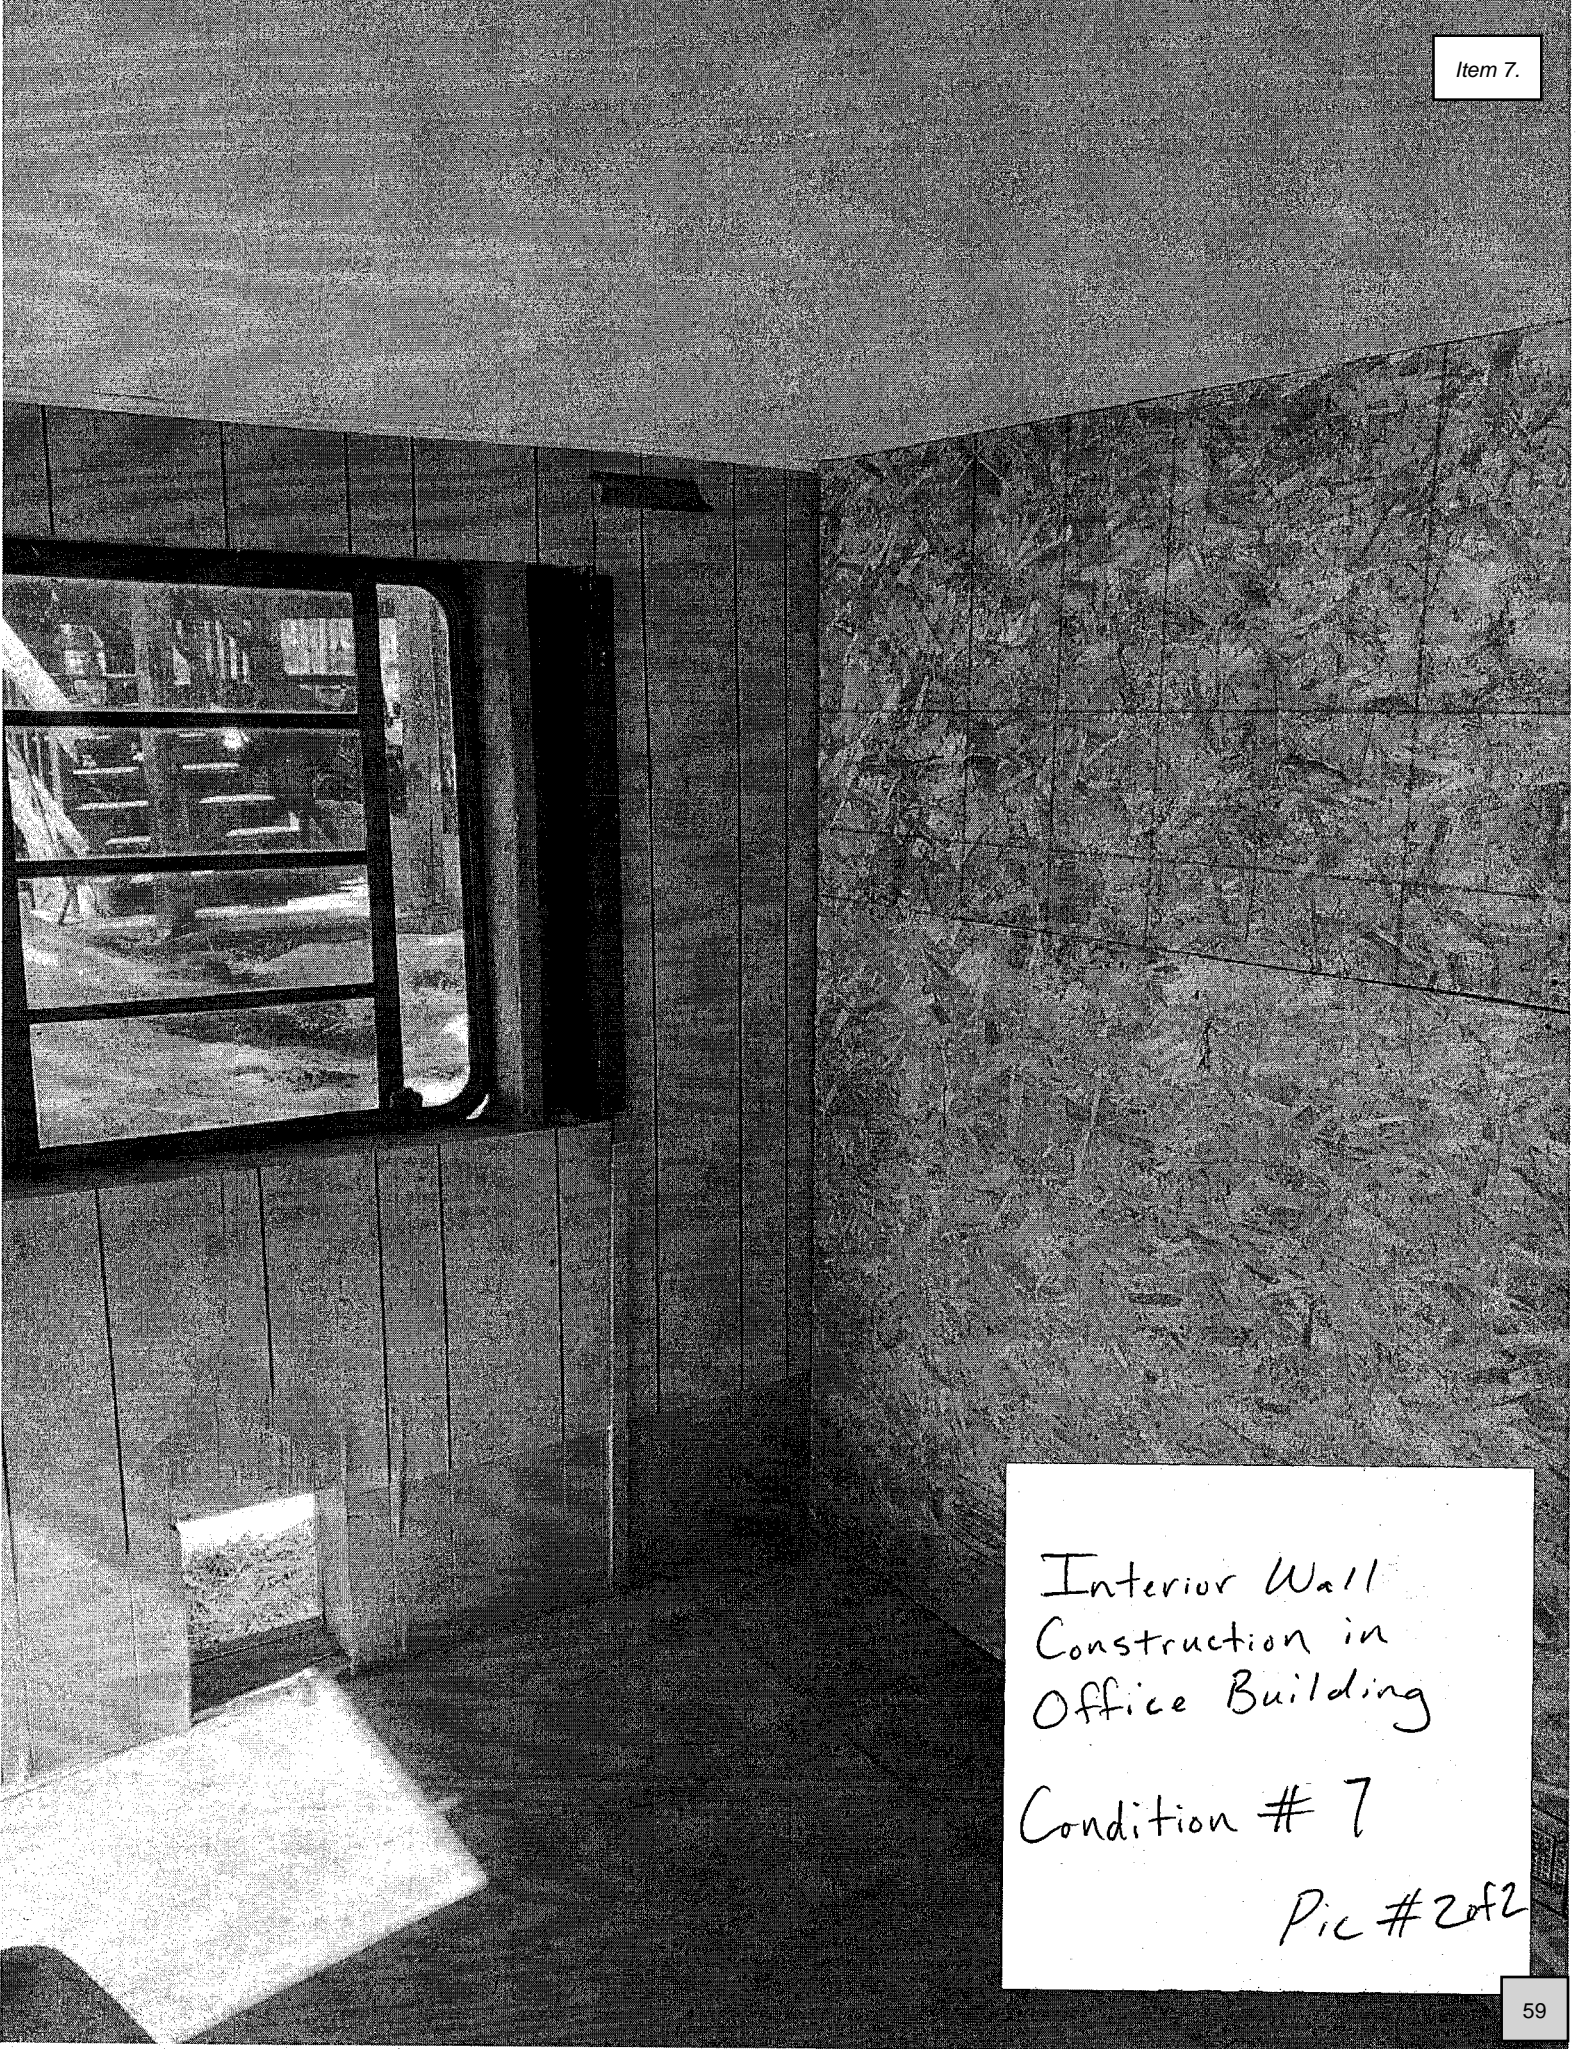 Item 7.
Interior Wall
Construction in
Office Building
Condition # 7
Pic # 2 of 2
59